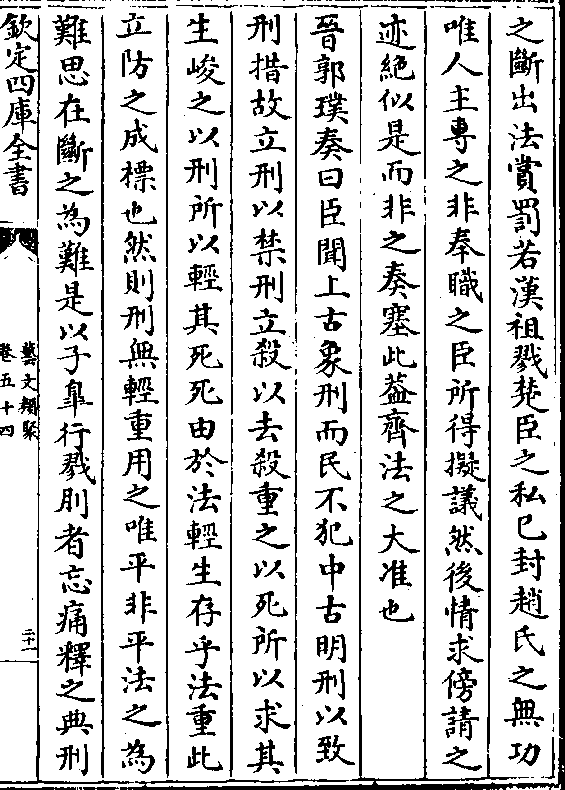 之斷出法賞罰若漢祖戮楚臣之私已封趙氏之無功
唯人主專之非奉職之臣所得擬議然後情求傍請之
迹絕似是而非之奏塞此葢齊法之大准也
晉郭璞奏曰臣聞上古象刑而民不犯中古明刑以致
刑措故立刑以禁刑立殺以去殺重之以死所以求其
生峻之以刑所以輕其死死由於法輕生存乎法重此
立防之成標也然則刑無輕重用之唯平非平法之為
難思在斷之為難是以子臯行戮刖者忘痛釋之典刑
欽定四庫全書
藝文類聚
卷五十四
二十一